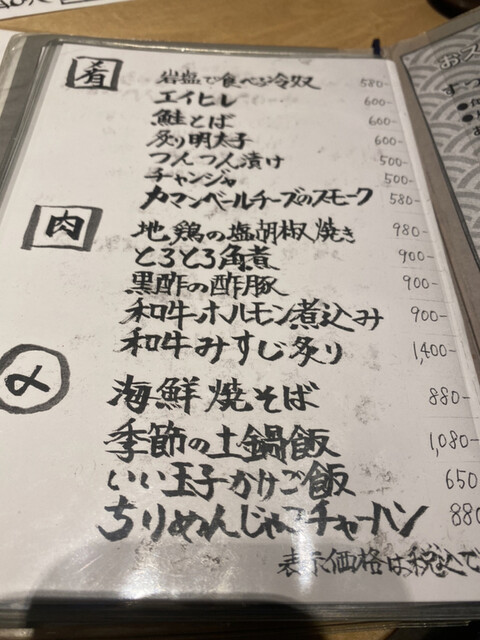 肴
岩塩で食べる冷奴 580-
エイヒレ 600-
鮭とば 600-
炙り明太子 600-
つんつん漬け 500-
チャンジャ 500-
カマンベールチーズのスモーク 580-
肉
地鶏の塩胡椒焼き 980-
とろとろ角煮 900-
黒酢の酢豚 900-
和牛ホルモン煮込み 900-
和牛みすじ炙り 1,400-
〆
海鮮焼そば 880-
季節の土鍋飯 1,080-
いい玉子かけご飯 650
ちりめんじゃこチャーハン 880
表示価格は税込で
おス
すっ